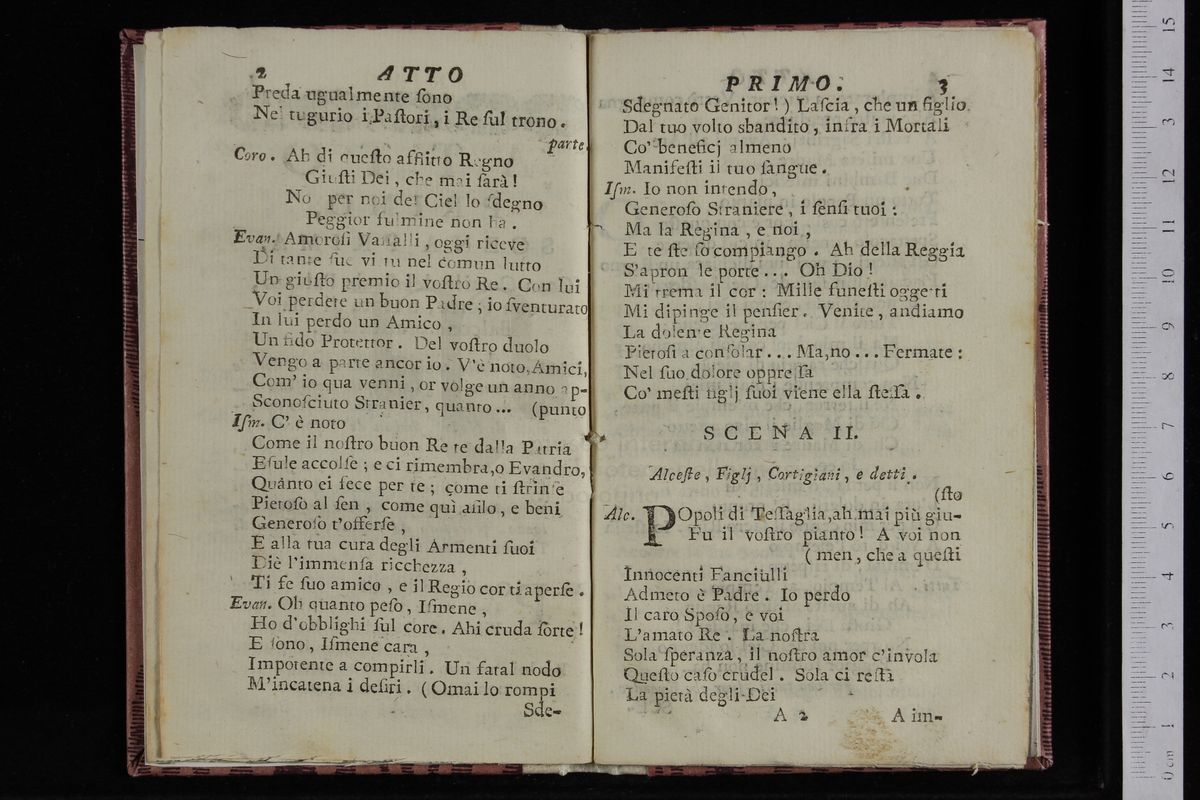 2 ATTO
Preda ugualmente ſono
Nel tugurio i Paſtori, i Re ſul trono.
parte
Coro. Ah di queſto afflitto Regno
Giuſti Dei, che mai ſarà!
No per noi del Ciel lo ſdegno
Peggior fulmine non ha.
Evan. Amoroſi Vaſſalli, oggi riceve
Di tante ſue virtù nel comun lutto
Un giuſto premio il voſtro Re. Con lui
Voi perdete un buon Padre; io ſventurato
In lui perdo un Amico,
Un fido Protettor. Del voſtro duolo
Vengo a parte ancor io. V'è noto, Amici,
Com' io qua venni, or volge un anno ap-
Sconoſciuto Stranier, quanto... (punto
Iſm. C' è noto
Come il noſtro buon Re te dalla Patria
Eſule accolſe; e ci rimembra, o Evandro,
Quánto ei fece per te; come ti ſtrinſe
Pietoſo al ſen, come quì aſilo, e beni
Generoſo t'offerſe,
E alla tua cura degli Armenti ſuoi
Diè l'immenſa ricchezza,
Ti fe ſuo amico, e il Regio cor ti aperſe.
Evan. Oh quanto peſo, Iſmene,
Ho d'obblighi ſul core. Ahi cruda ſorte!
E ſono, Iſmene cara,
Impotente a compirli. Un fatal nodo
M'incatena i deſiri. (Omai lo rompi
Sde-
PRIMO. 3
Sdegnato Genitor!) Laſcia, che un figlio
Dal tuo volto sbandito, infra i Mortali
Co' beneficj almeno
Manifeſti il tuo ſangue.
Iſm. Io non intendo,
Generoſo Straniere, i ſenſi tuoi:
Ma la Regina, e noi,
E te ſteſſo compiango. Ah della Reggia
S'apron le porte... Oh Dio!
Mi trema il cor: Mille funeſti oggetti
Mi dipinge il penſier. Venite, andiamo
La dolente Regina
Pietoſi a conſolar... Ma, no... Fermate:
Nel ſuo dolore oppreſſa
Co' meſti figlj ſuoi viene ella ſteſſa.
SCENA II.
Alceſte, Figlj, Cortigiani, e detti.
(ſto
Alc. POpoli di Teſſaglia, ah mai più giu-
Fu il voſtro pianto! A voi non
(men, che a queſti
Innocenti Fanciulli
Admeto è Padre. Io perdo
Il caro Spoſo, e voi
L'amato Re. La noſtra
Sola ſperanza, il noſtro amor c'invola
Queſto caſo crudel. Sola ci reſti
La pietà degli Dei
A 2 A im-
0 cm 1 2 3 4 5 6 7 8 9 10 11 12 13 14 15